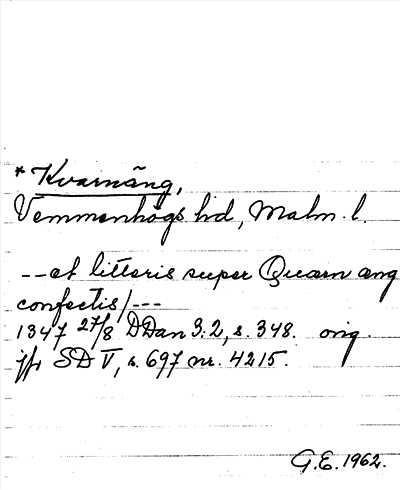 * Kvarnäng,
Vemmenhögs hd, Malm. l.
-- et litteris super Quarn ang
confectis/---
1347 27/8 DDan 3:2, s. 348. orig.
jfr SD V, s. 697 nr. 4215.
G.E. 1962.